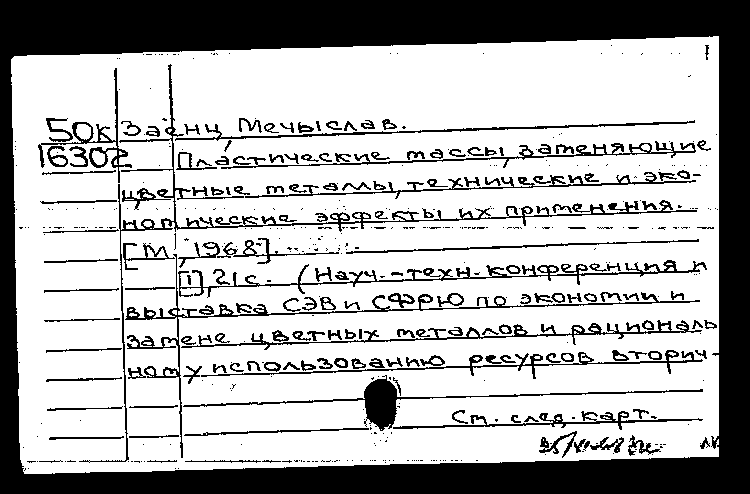 50к Заенц, Мечыслав.
16302 Пластические массы, заменяющие
цветные металлы, технические и эко-
номические эффекты их применения.
[М., 1968].
[1], 21 с. (Науч.-техн. конференция и
выставка СЭВ и СФРЮ по экономии и
замене цветных металлов и рациональ
ному использованию ресурсов вторич-
См. след. карт.